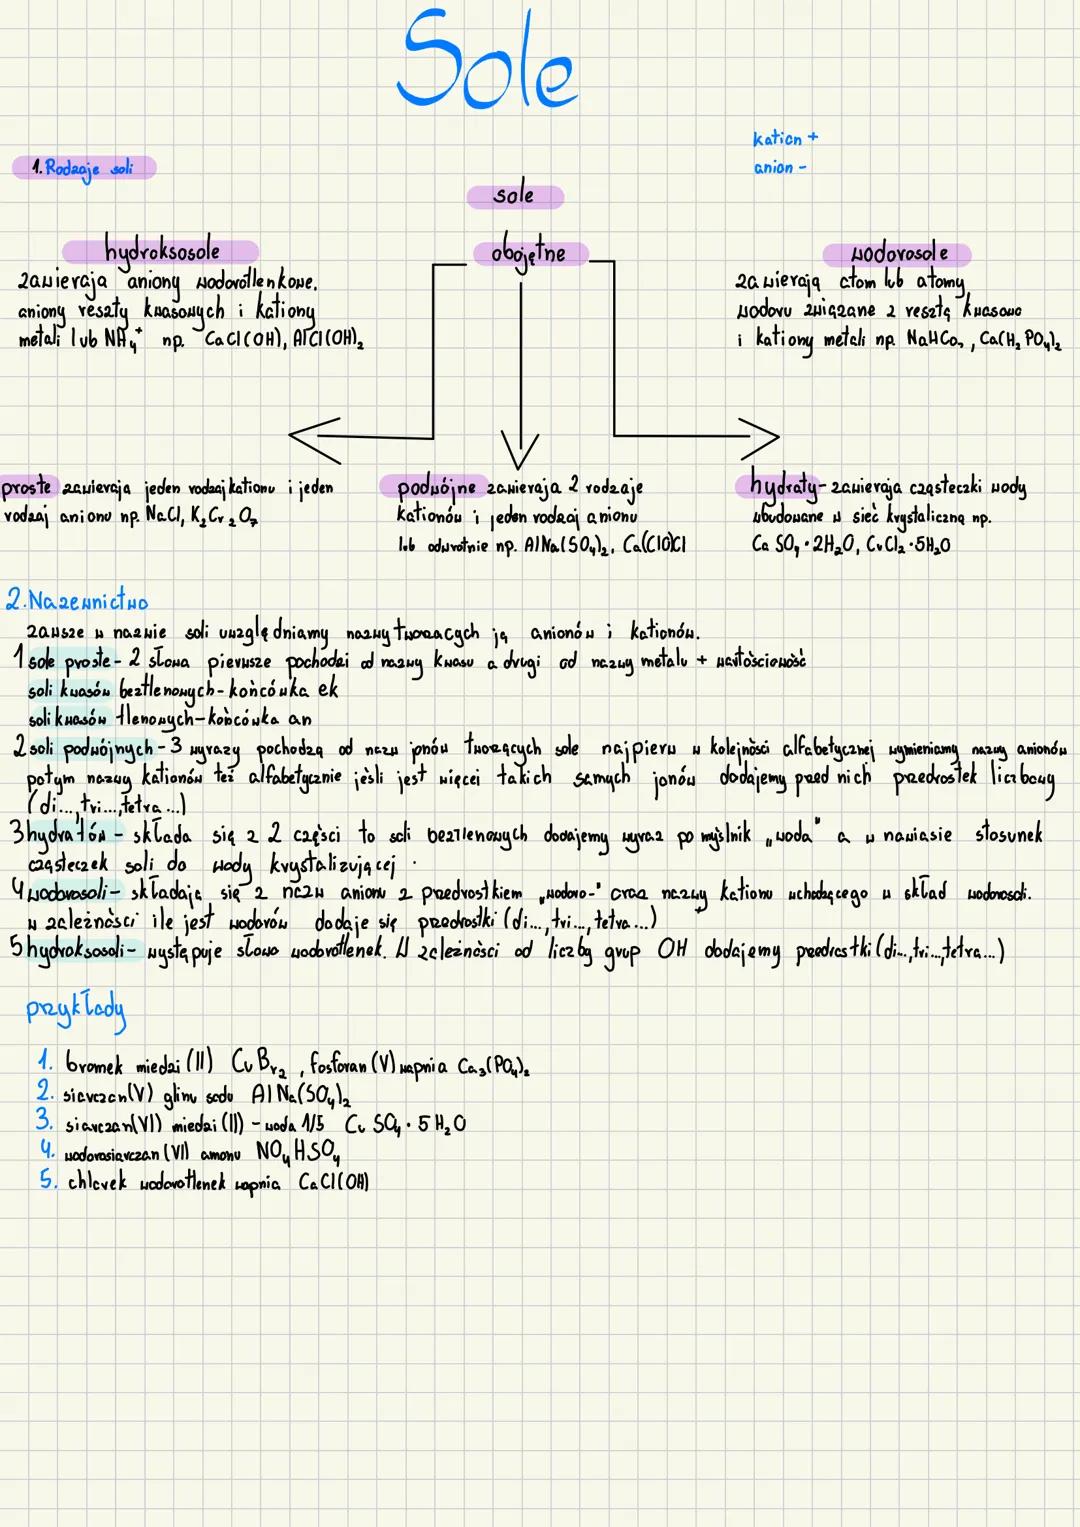 Sole
kation +
anion -
1. Rodzaje soli
sole
hydroksosole
zawieraja aniony wodorotlenkowe,
aniony reszty kwasowych i kationy
metali lub NH₄⁺ np. CaCl(OH), AlCl(OH)₂
obojętne
wodorosole
zawierają atom lub atomy
wodoru związane z resztą kwasowo
i kationy metali np. NaHCO₃, Ca(H₂PO₄)₂
proste zawieraja jeden rodzaj kationu i jeden
rodzaj anionu np. NaCl, K₂Cr₂O₇
podwójne zawieraja 2 rodzaje
kationów i jeden rodzaj anionu
lub odwrotnie np. AlNa(SO₄)₂, Ca(ClO)Cl
hydraty- zawieraja cząsteczki wody
wbudowane w sieć krystaliczną np.
CaSO₄·2H₂O, CuCl₂·5H₂O
2. Nazewnictwo
zawsze w nazwie soli uwzględniamy nazwy tworzacych ją anionów i kationów.
1 sole proste- 2 słowa pierwsze pochodzi od nazwy kwasu a drugi od nazwy metalu + wartościowość
soli kwasów beztlenowych- końcówka ek
soli kwasów tlenowych- końcówka an
2 soli podwójnych - 3 wyrazy pochodzą od nazw jonów tworzących sole najpierw w kolejności alfabetycznej wymieniamy nazwy anionów
potym nazwy kationów też alfabetycznie jeśli jest więcej takich samych jonów dodajemy przed nich przedrostek liczbowy
(di..., tri..., tetra...)
3 hydratów - składa się z 2 części to soli beztlenowych dodajemy wyraz po myślnik „woda" a w nawiasie stosunek
cząsteczek soli do wody krystalizującej.
4 wodorosoli- składają się z nazw anionu z przedrostkiem „wodoro-" oraz nazwy kationu wchodzącego w skład wodorosoli.
w zależności ile jest wodorów dodaje się przedrostki (di..., tri..., tetra...)
5 hydroksosoli- występuje słowo wodorotlenek. W zależności od liczby grup OH dodajemy przedrostki (di..., tri..., tetra...)
przykłady
1. bromek miedzi (II) CuBr₂, fosforan (V) wapnia Ca₃(PO₄)₂
2. siarczan(V) glinu sodu AlNa(SO₄)₂
3. siarczan(VI) miedzi (II) - woda 1/5 CuSO₄·5H₂O
4. wodorosiarczan (VI) amonu NO₄HSO₄
5. chlorek wodorotlenek wapnia CaCl(OH)